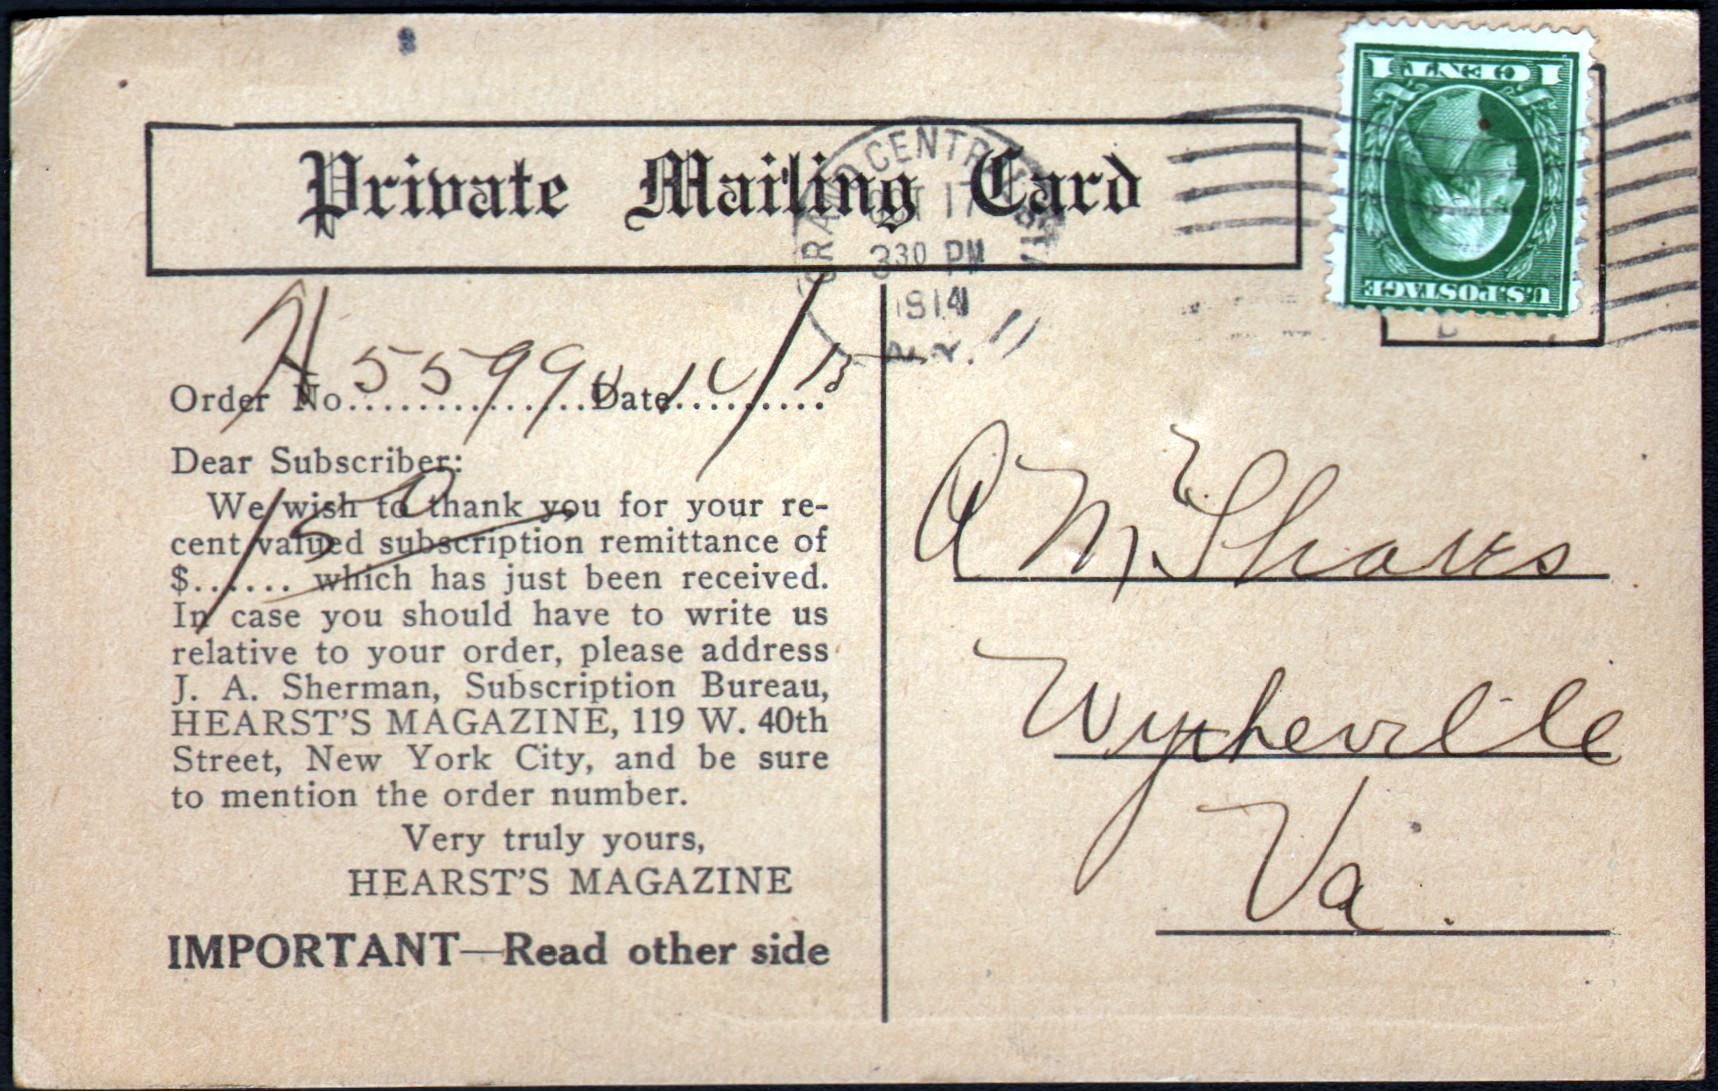 Private Mailing Card
GRAND CENTRAL STA.
OCT 17
330 PM
1914
N.Y.
1 CENT 1
U.S. POSTAGE
Order No. H 5599 Date 10/13
Dear Subscriber:
We wish to thank you for your re-
cent valued subscription remittance of
$ 1 50 which has just been received.
In case you should have to write us
relative to your order, please address
J. A. Sherman, Subscription Bureau,
HEARST'S MAGAZINE, 119 W. 40th
Street, New York City, and be sure
to mention the order number.
Very truly yours,
HEARST'S MAGAZINE
IMPORTANT—Read other side
A M
Wytheville
Va.